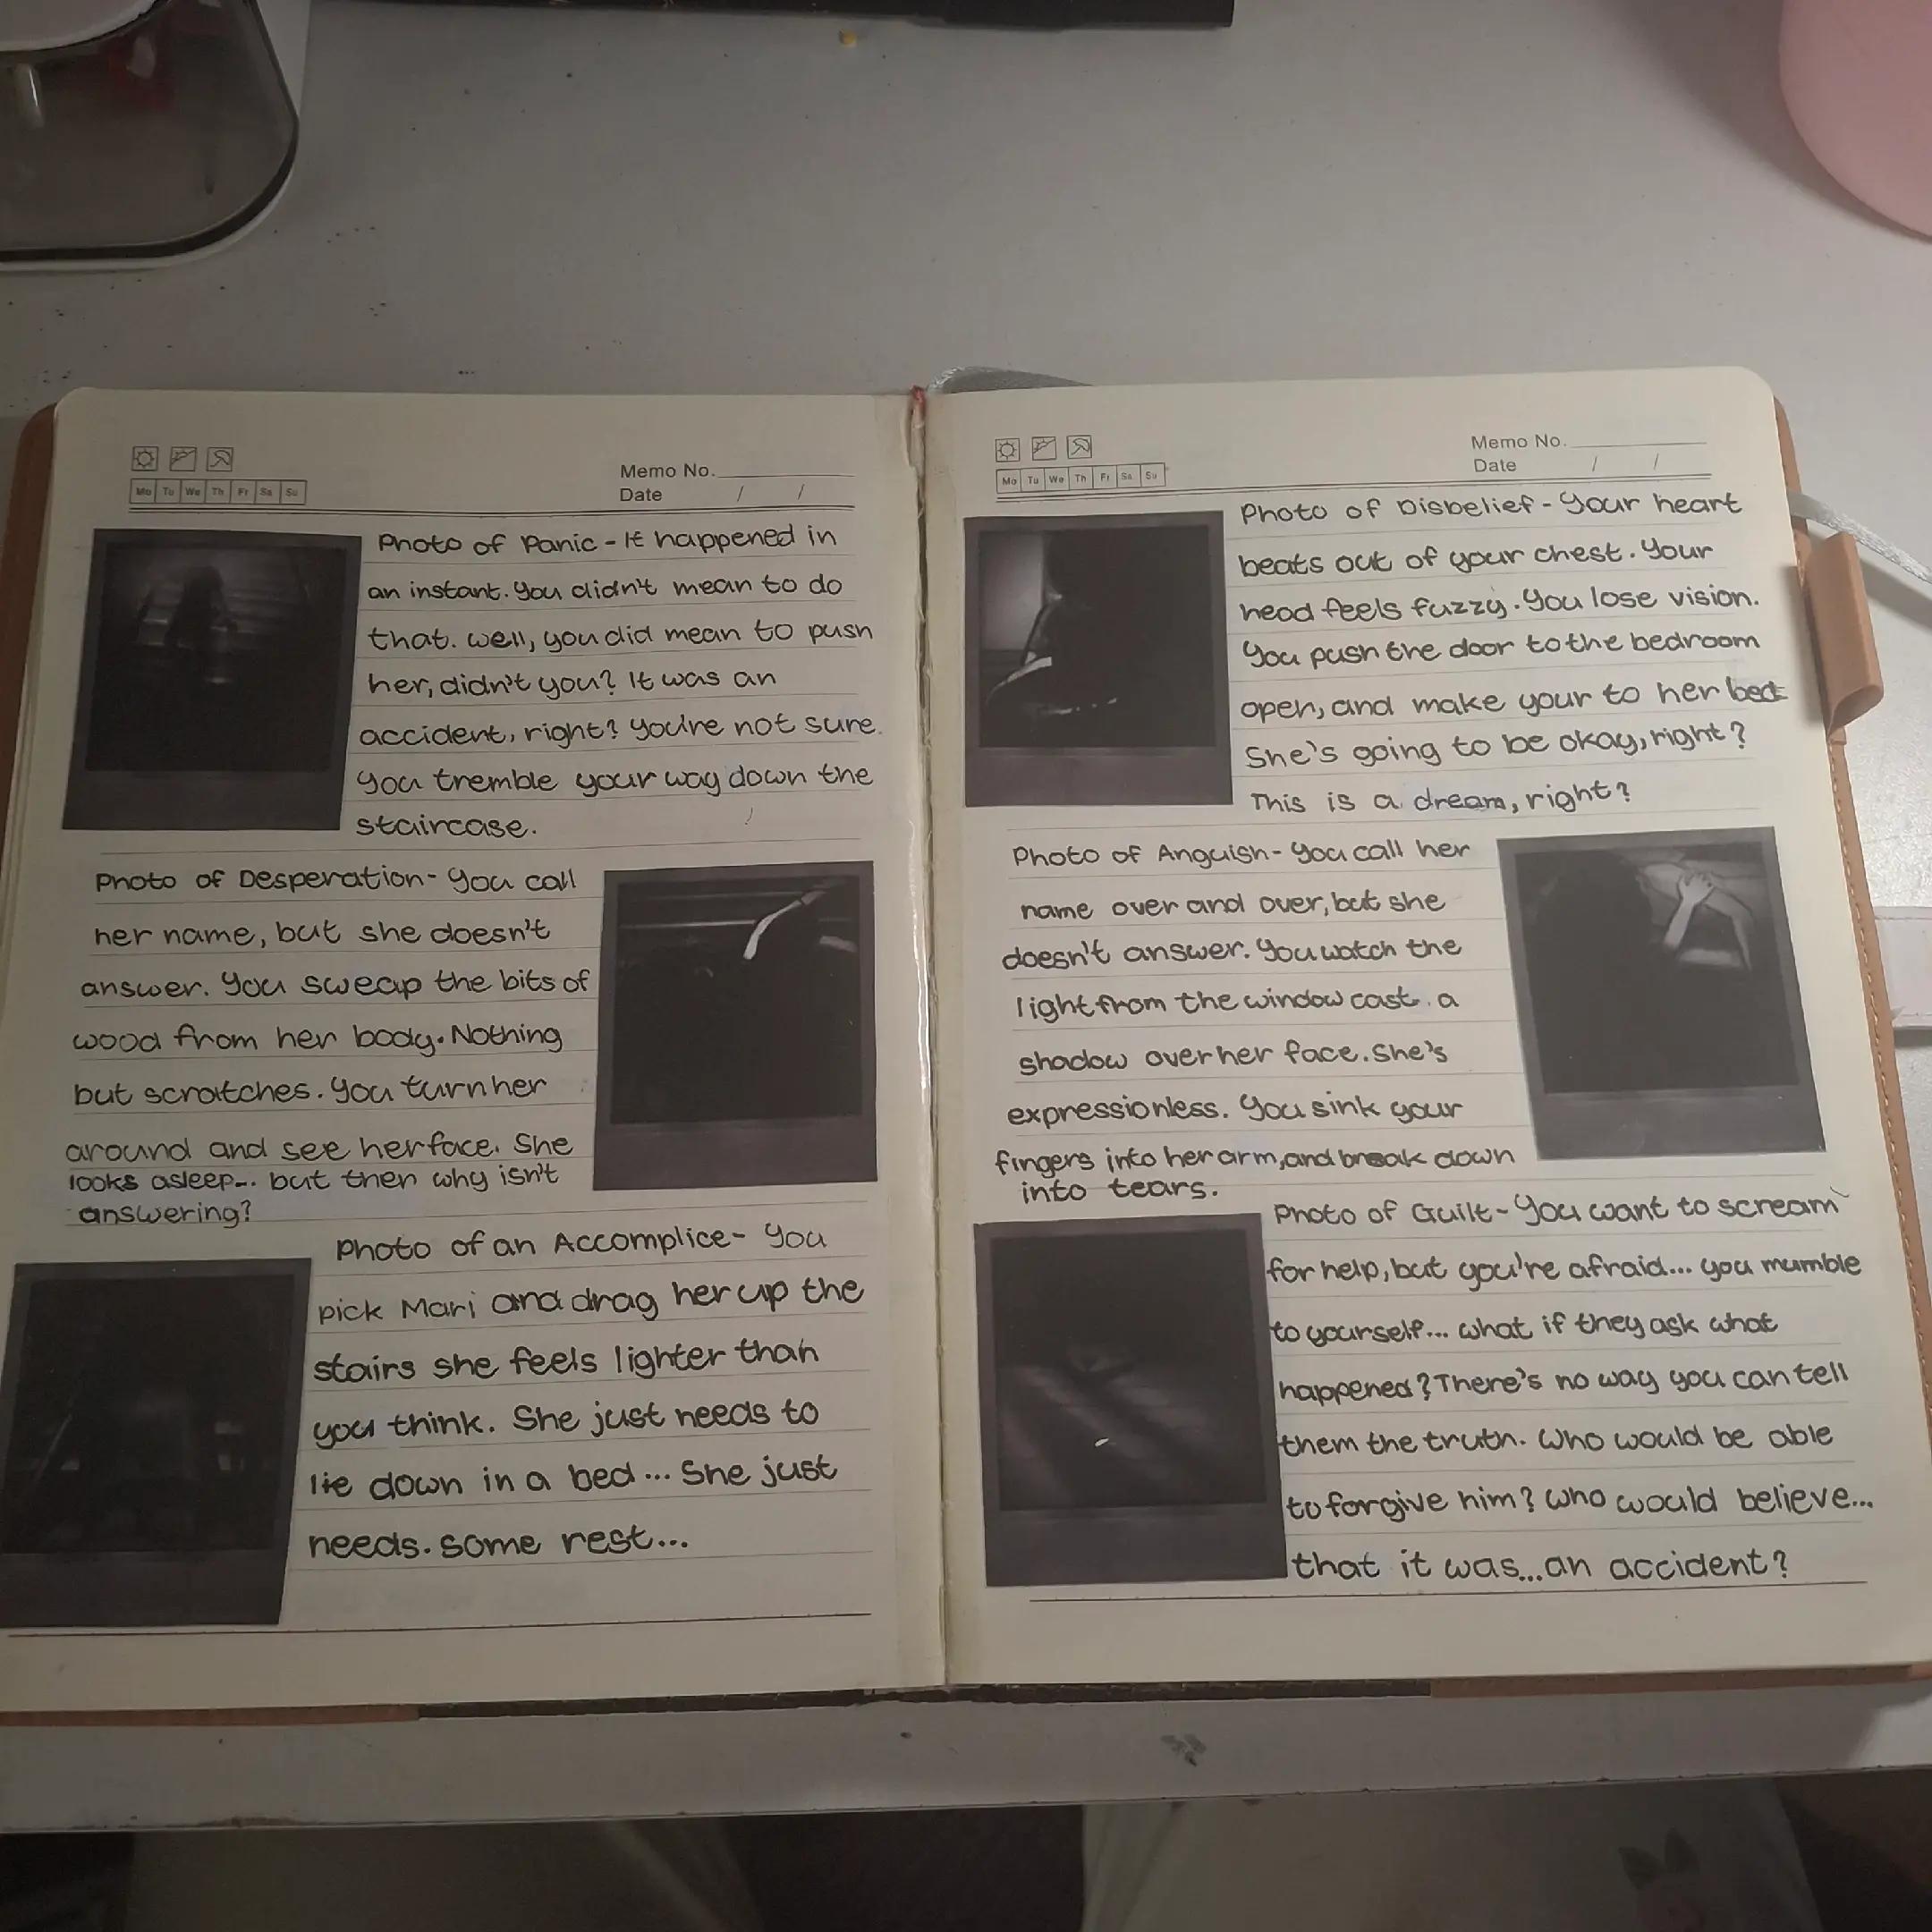 Memo No.
Mo Tu We Th Fr Sa Su
Date / /
Photo of Panic - It happened in
an instant. You didn't mean to do
that. well, you did mean to push
her, didn't you? It was an
accident, right? You're not sure.
you tremble your way down the
staircase.
Photo of Desperation - You call
her name, but she doesn't
answer. You sweap the bits of
wood from her body. Nothing
but scratches. You turn her
around and see her face. She
looks asleep... but then why isn't
answering?
Photo of an Accomplice - You
pick Mari and drag her up the
stairs she feels lighter than
you think. She just needs to
lie down in a bed... She just
needs. some rest...
Memo No.
Mo Tu We Th Fr Sa Su
Date / /
Photo of Disbelief - Your heart
beats out of your chest. Your
head feels fuzzy. You lose vision.
You push the door to the bedroom
open, and make your to her bed
She's going to be okay, right?
This is a dream, right?
Photo of Anguish - You call her
name over and over, but she
doesn't answer. You watch the
light from the window cast a
shadow over her face. She's
expressionless. You sink your
fingers into her arm, and break down
into tears.
Photo of Guilt - You want to scream
for help, but you're afraid... you mumble
to yourself... what if they ask what
happened? There's no way you can tell
them the truth. Who would be able
to forgive him? Who would believe...
that it was... an accident?